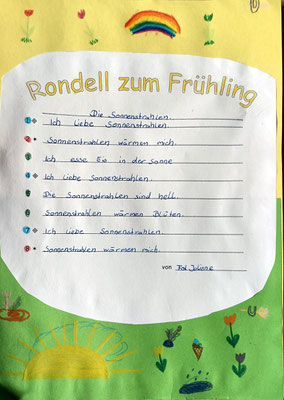 Rondell zum Frühling
Die Sonnenstrahlen.
1 Ich liebe Sonnenstrahlen.
2 Sonnenstrahlen wärmen mich.
3 Ich esse Eis in der Sonne
4 Ich liebe Sonnenstrahlen.
5 Die Sonnenstrahlen sind hell.
6 Sonnenstrahlen wärmen Blüten.
7 Ich liebe Sonnenstrahlen.
8 Sonnenstrahlen wärmen mich.
von